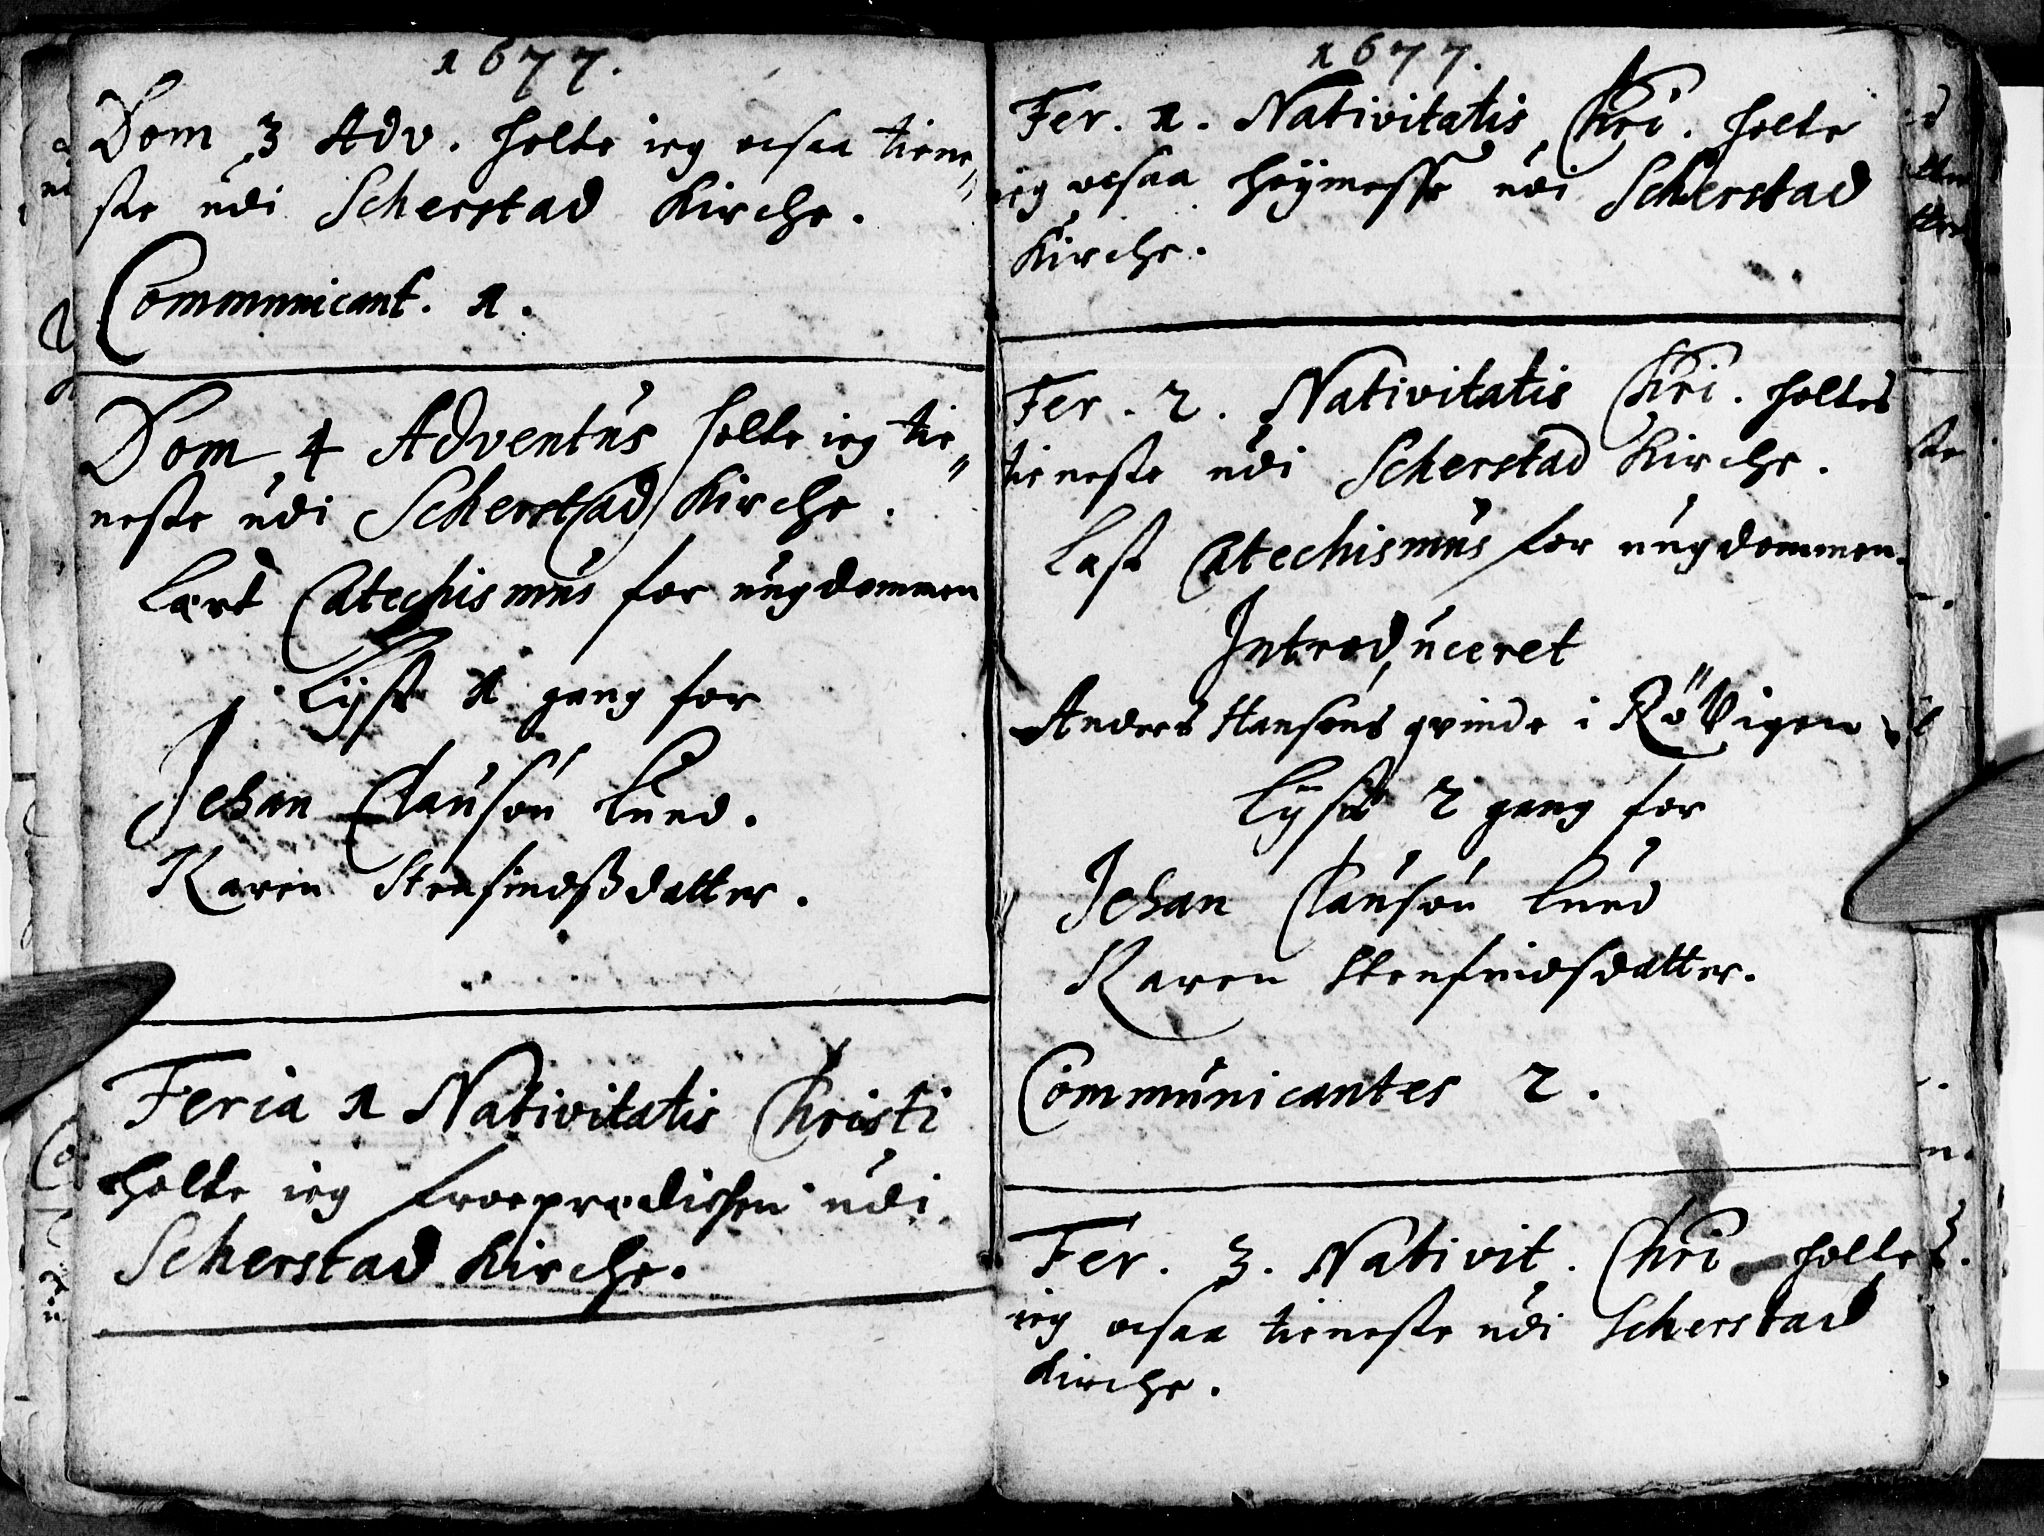 1677.
Dom 3 Adv. holte ieg ocsaa tiene„
ste udi Scherstad Kirche.
Communicant. 1.
Dom 4 Adventus holte ieg tie„
neste udi Scherstad Kirche.
Lært Catechismus for ungdommen
Lyst 1 gang for
Johan Clausøn Lund.
Karen Stensindßdatter.
Feria 1 Nativitatis Christi
holte ieg froeprædichen udi
Scherstad Kirche.
1677.
Fer. 1. Nativitatis Chri. holte
ieg ocsaa høymesse udi Scherstad
Kirche.
Fer. 2. Nativitatis Chri. holtes
tieneste udi Scherstad Kirche.
Læst Catechismus for ungdommen.
Introduceret
Anders Hansøns qvinde i RöVigen
Lyst 2 gang for
Johan Clausøn Lund
Karen Stensindsdatter.
Communicantes 2.
Fer. 3. Nativit. Chri holte
ieg ocsaa tieneste udi Scherstad
Kirche.